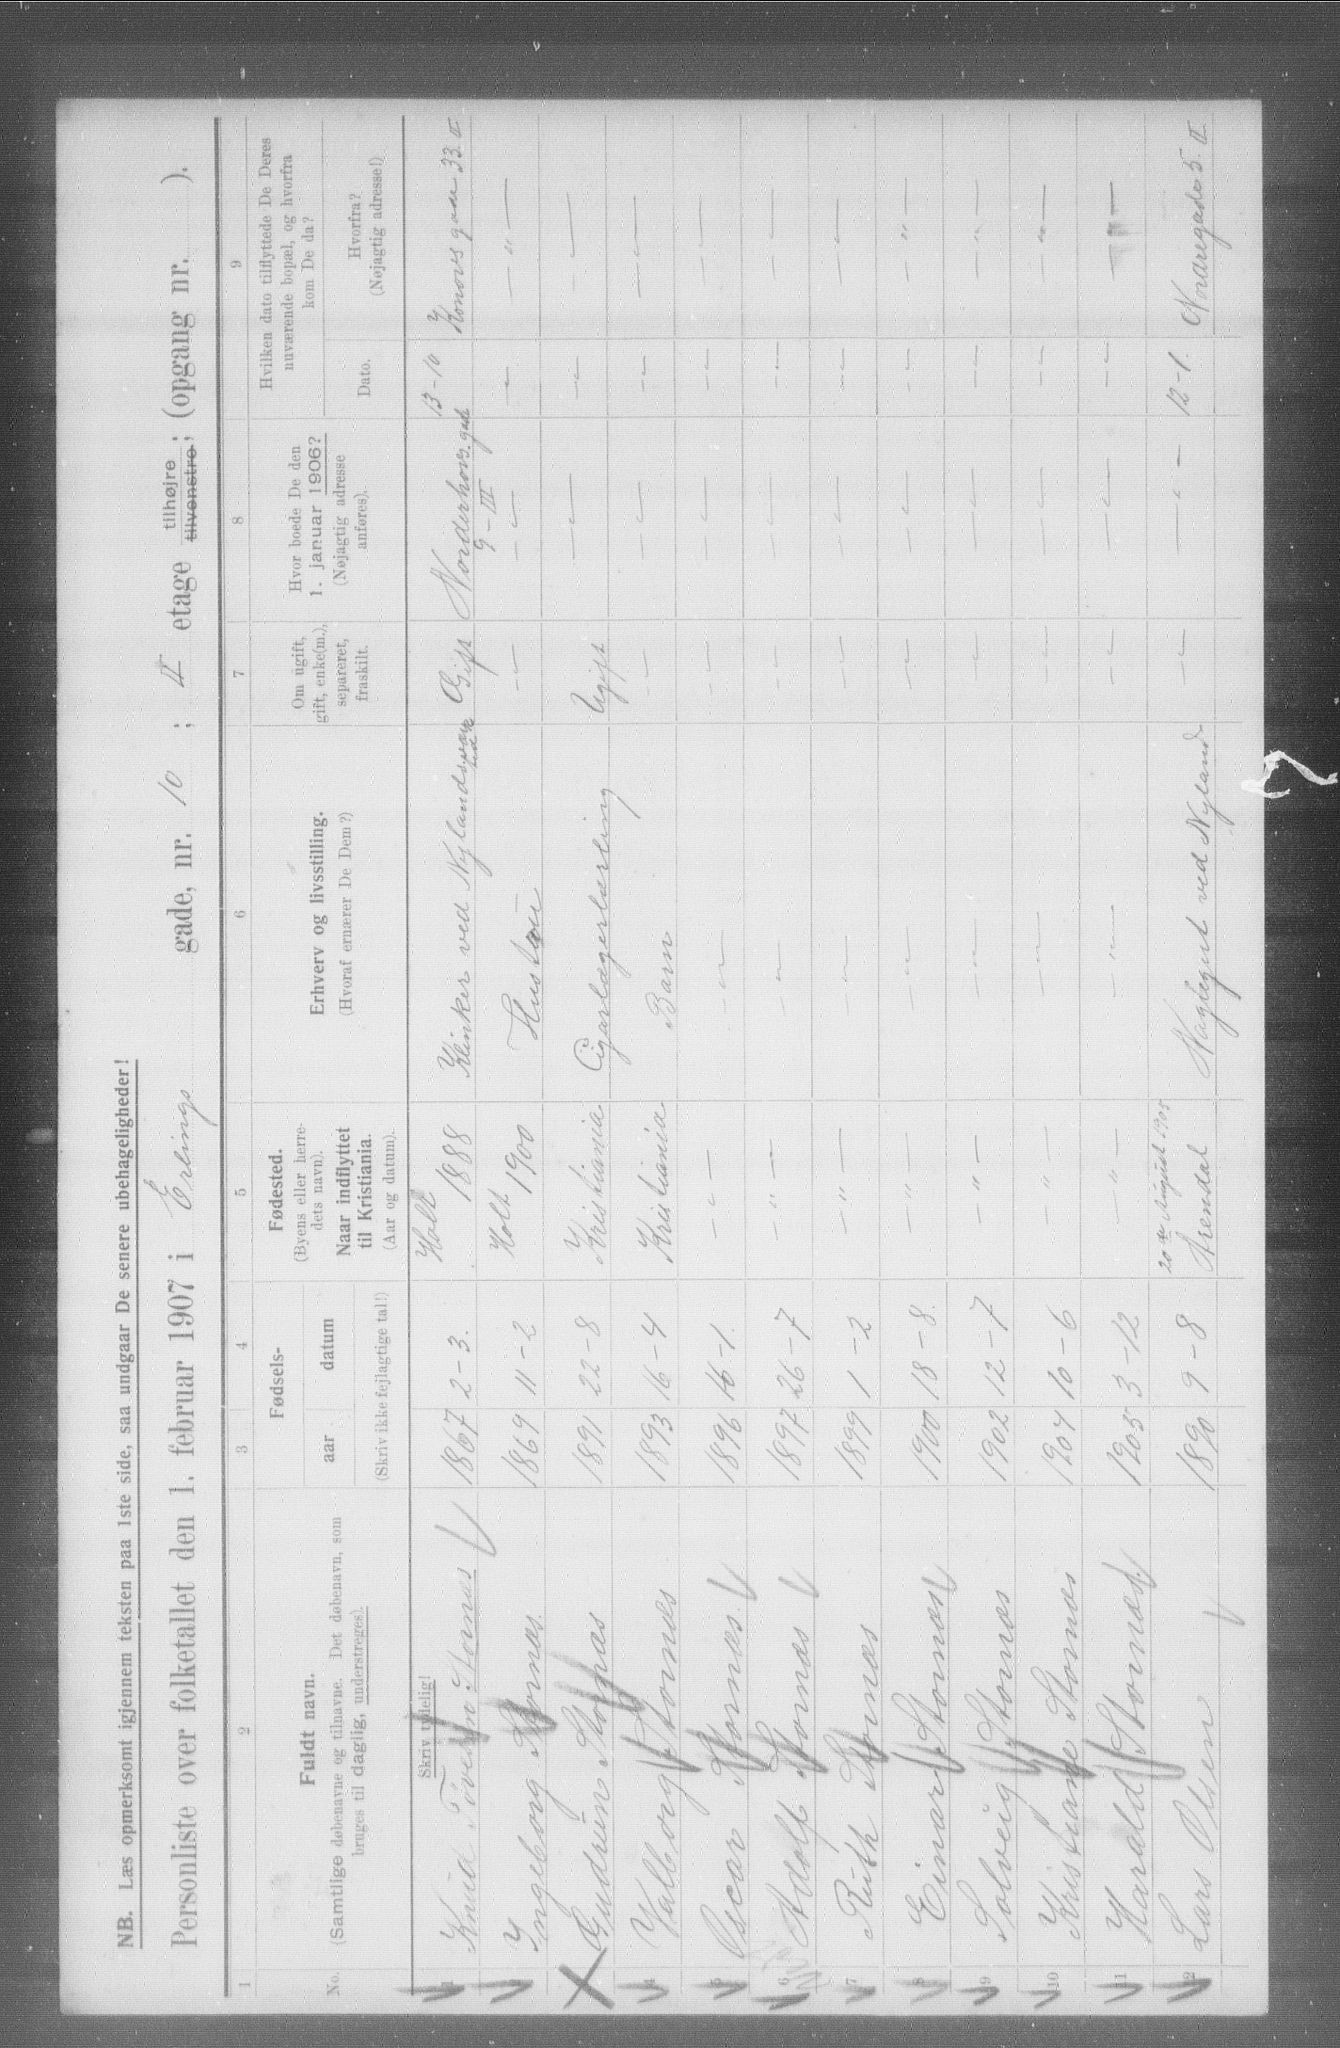 NB. Læs opmerksomt igjennem teksten paa 1ste side, saa undgaar De senere ubehageligheder!
Personliste over folketallet den 1. februar 1907 i Erlings gade, nr. 10 ; 4 etage tilhøjre tilvenstre; (opgang nr. ).
1 2 3 4 5 6 7 8 9
No.
Fuldt navn.
(Samtlige døbenavne og tilnavne. Det døbenavn, som
bruges til daglig, understreges).
Fødsels-
aar datum
(Skriv ikke fejlagtige tal!)
Fødested.
(Byens eller herre-
dets navn).
Naar indflyttet
til Kristiania.
(Aar og datum).
Erhverv og livsstilling.
(Hvoraf ernærer De Dem?)
Om ugift,
gift, enke(m.),
separeret,
fraskilt.
Hvor boede De den
1. januar 1906?
(Nøjagtig adresse
anføres).
Hvilken dato tilflyttede De Deres
nuværende bopæl, og hvorfra
kom De da?
Dato.
Hvorfra?
(Nøjagtig adresse!)
Skriv tydelig!
1 Knud Stornæs 1867 2-3. Holt 1888 Klinker ved Nylands Gift Norderhovs. gade 9-III 13-10 Konows gade 33 II
2 Ingeborg Stornæs. 1869 11-2 Holt 1900 Hustru —"— —"— —"— —"—
Gudrun Stornæs 1891 22-8 Kristiania Cigarlagerlærling Ugift —"— —"— —"—
4 Valborg Stornæs 1893 16-4 Kristiania Barn —"— —"— —"— —"—
5 Oscar Stornæs. 1896 16-1. —"— —"— —"— —"— —"— —"—
6 Adolf Stornæs 1897 26-7 —"— —"— —"— —"— —"— —"—
7 Ruth Stornæs 1899 1-2 —"— —"— —"— —"— —"— —"—
8 Einar Stornæs 1900 18-8. —"— —"— —"— —"— —"— —"—
9 Solveig Stornæs 1902 12-7 —"— —"— —"— —"— —"— —"—
10 Kristiane Stornæs 1904 10-6 —"— —"— —"— —"— —"— —"—
11 Harald Stornæs. 1905 3-12 —"— —"— —"— —"— —"— —"—
12 Lars Olsen 1890 9-8 20de August 1905 Arendal Naglegut ved Nyland —"— —"— 12-1. Nordregade 5. II